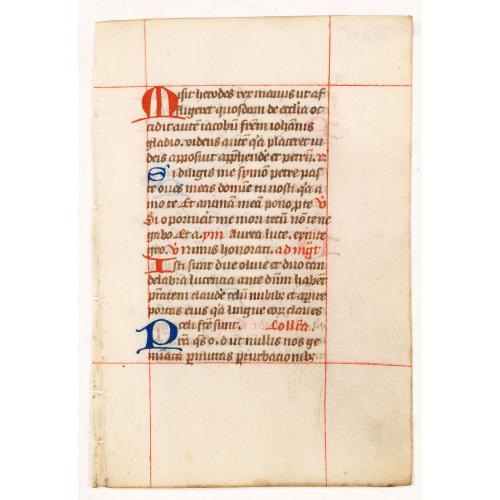 Misit herodes rex manus ut af
fligeret quosdam de ecclīa oc
cidit autē iacobū frēm iohānis
gladio. videns autē qā placeret iu
deis apposuit apphende et petrū. R
Si diligis me symon petre pas
ce oues meas domine tu nosti qā a
mo te Et animam meā pono p te V
Si oportuerit me mori tecū non te ne
gabo. Et a. ym Aurea luce.
gro. V nimis honorati. ad mgt
Isti sunt due oliue et duo can
delabra lucencia ante dūm habēt
ptātem claudē celū nubibz et apire
portas eius qā lingue eor claues
celi fcē sunt. Collcā.
Pra qs o. d ut nullis nos
pmittas pturbacionibz